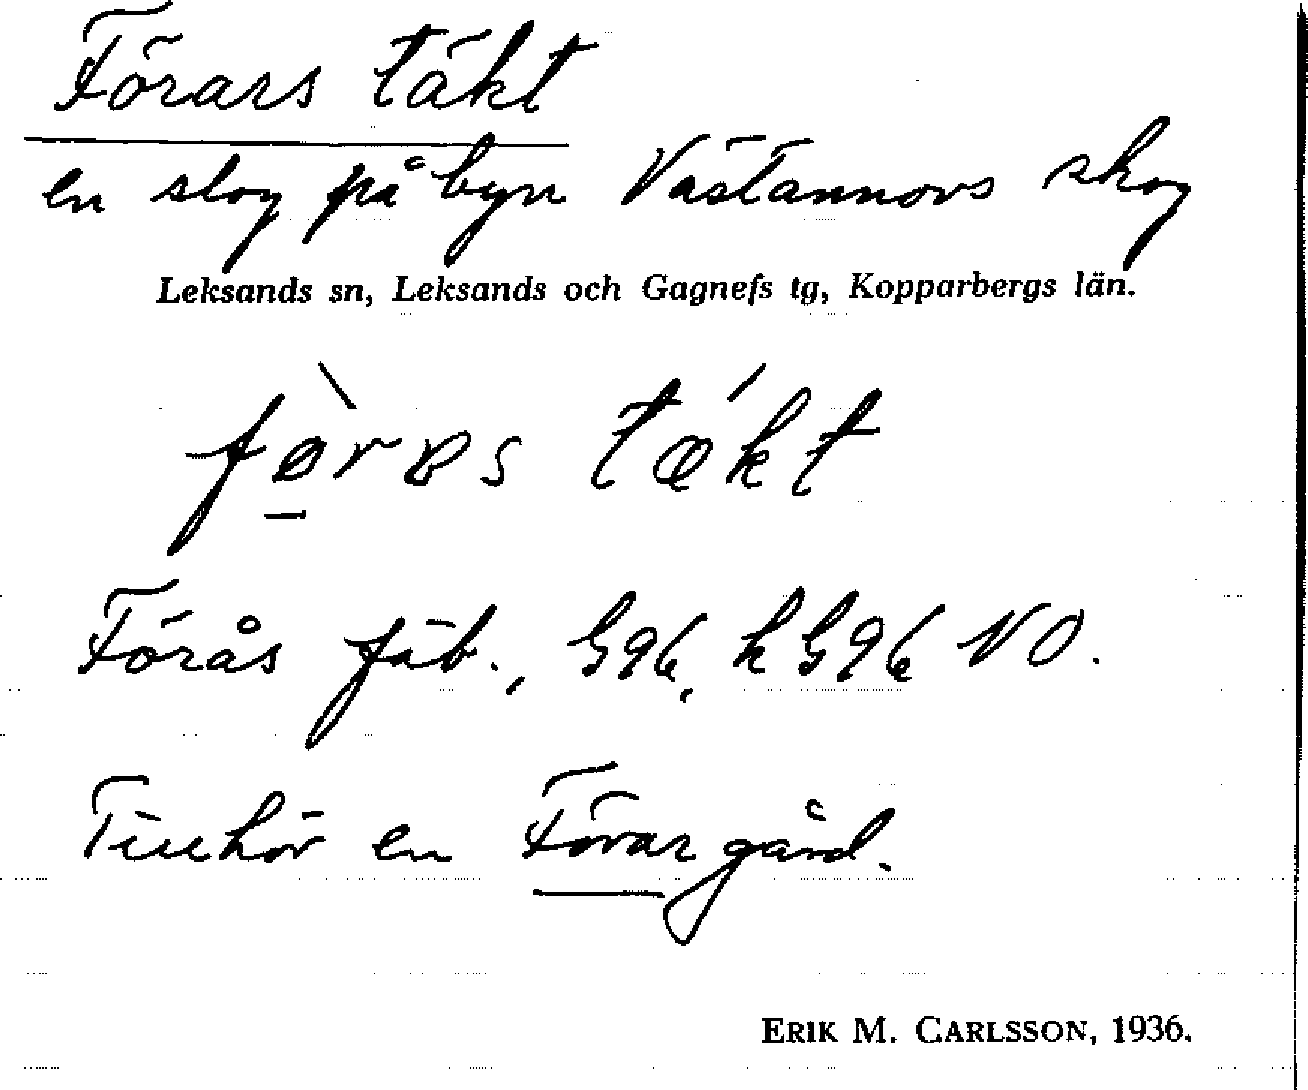 Förars täkt
en slog på byn Västannors skog
Leksands sn, Leksands och Gagnefs tg, Kopparbergs län.
tækt
Förås fäb., G96, k G96 NO.
Tillhör en Förar gård.
ERIK M. CARLSSON, 1936.